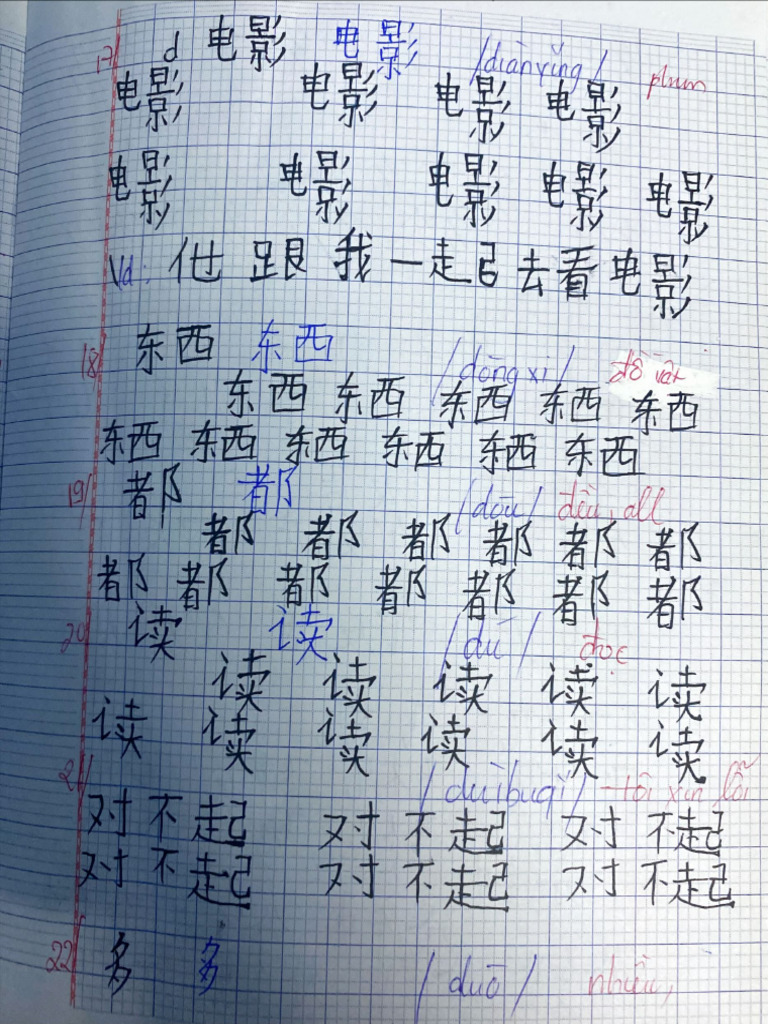 17 d 电影 电影 /diànyǐng/ phim
电影 电影 电影 电影
电影 电影 电影 电影 电影
Vd: 他 跟 我 一起 去 看 电影
18 东西 东西 /dōngxi/ đồ vật
东西 东西 东西 东西 东西
东西 东西 东西 东西 东西 东西
19/ 都 都 /dōu/ đều, all
都 都 都 都 都 都
都 都 都 都 都 都 都
20 读 读 /dú/ đọc
读 读 读 读 读
读 读 读 读 读 读
21/ /duìbuqǐ/ tôi xin lỗi
对不起 对不起 对不起
对不起 对不起 对不起
22 多 多 /duō/ nhiều,